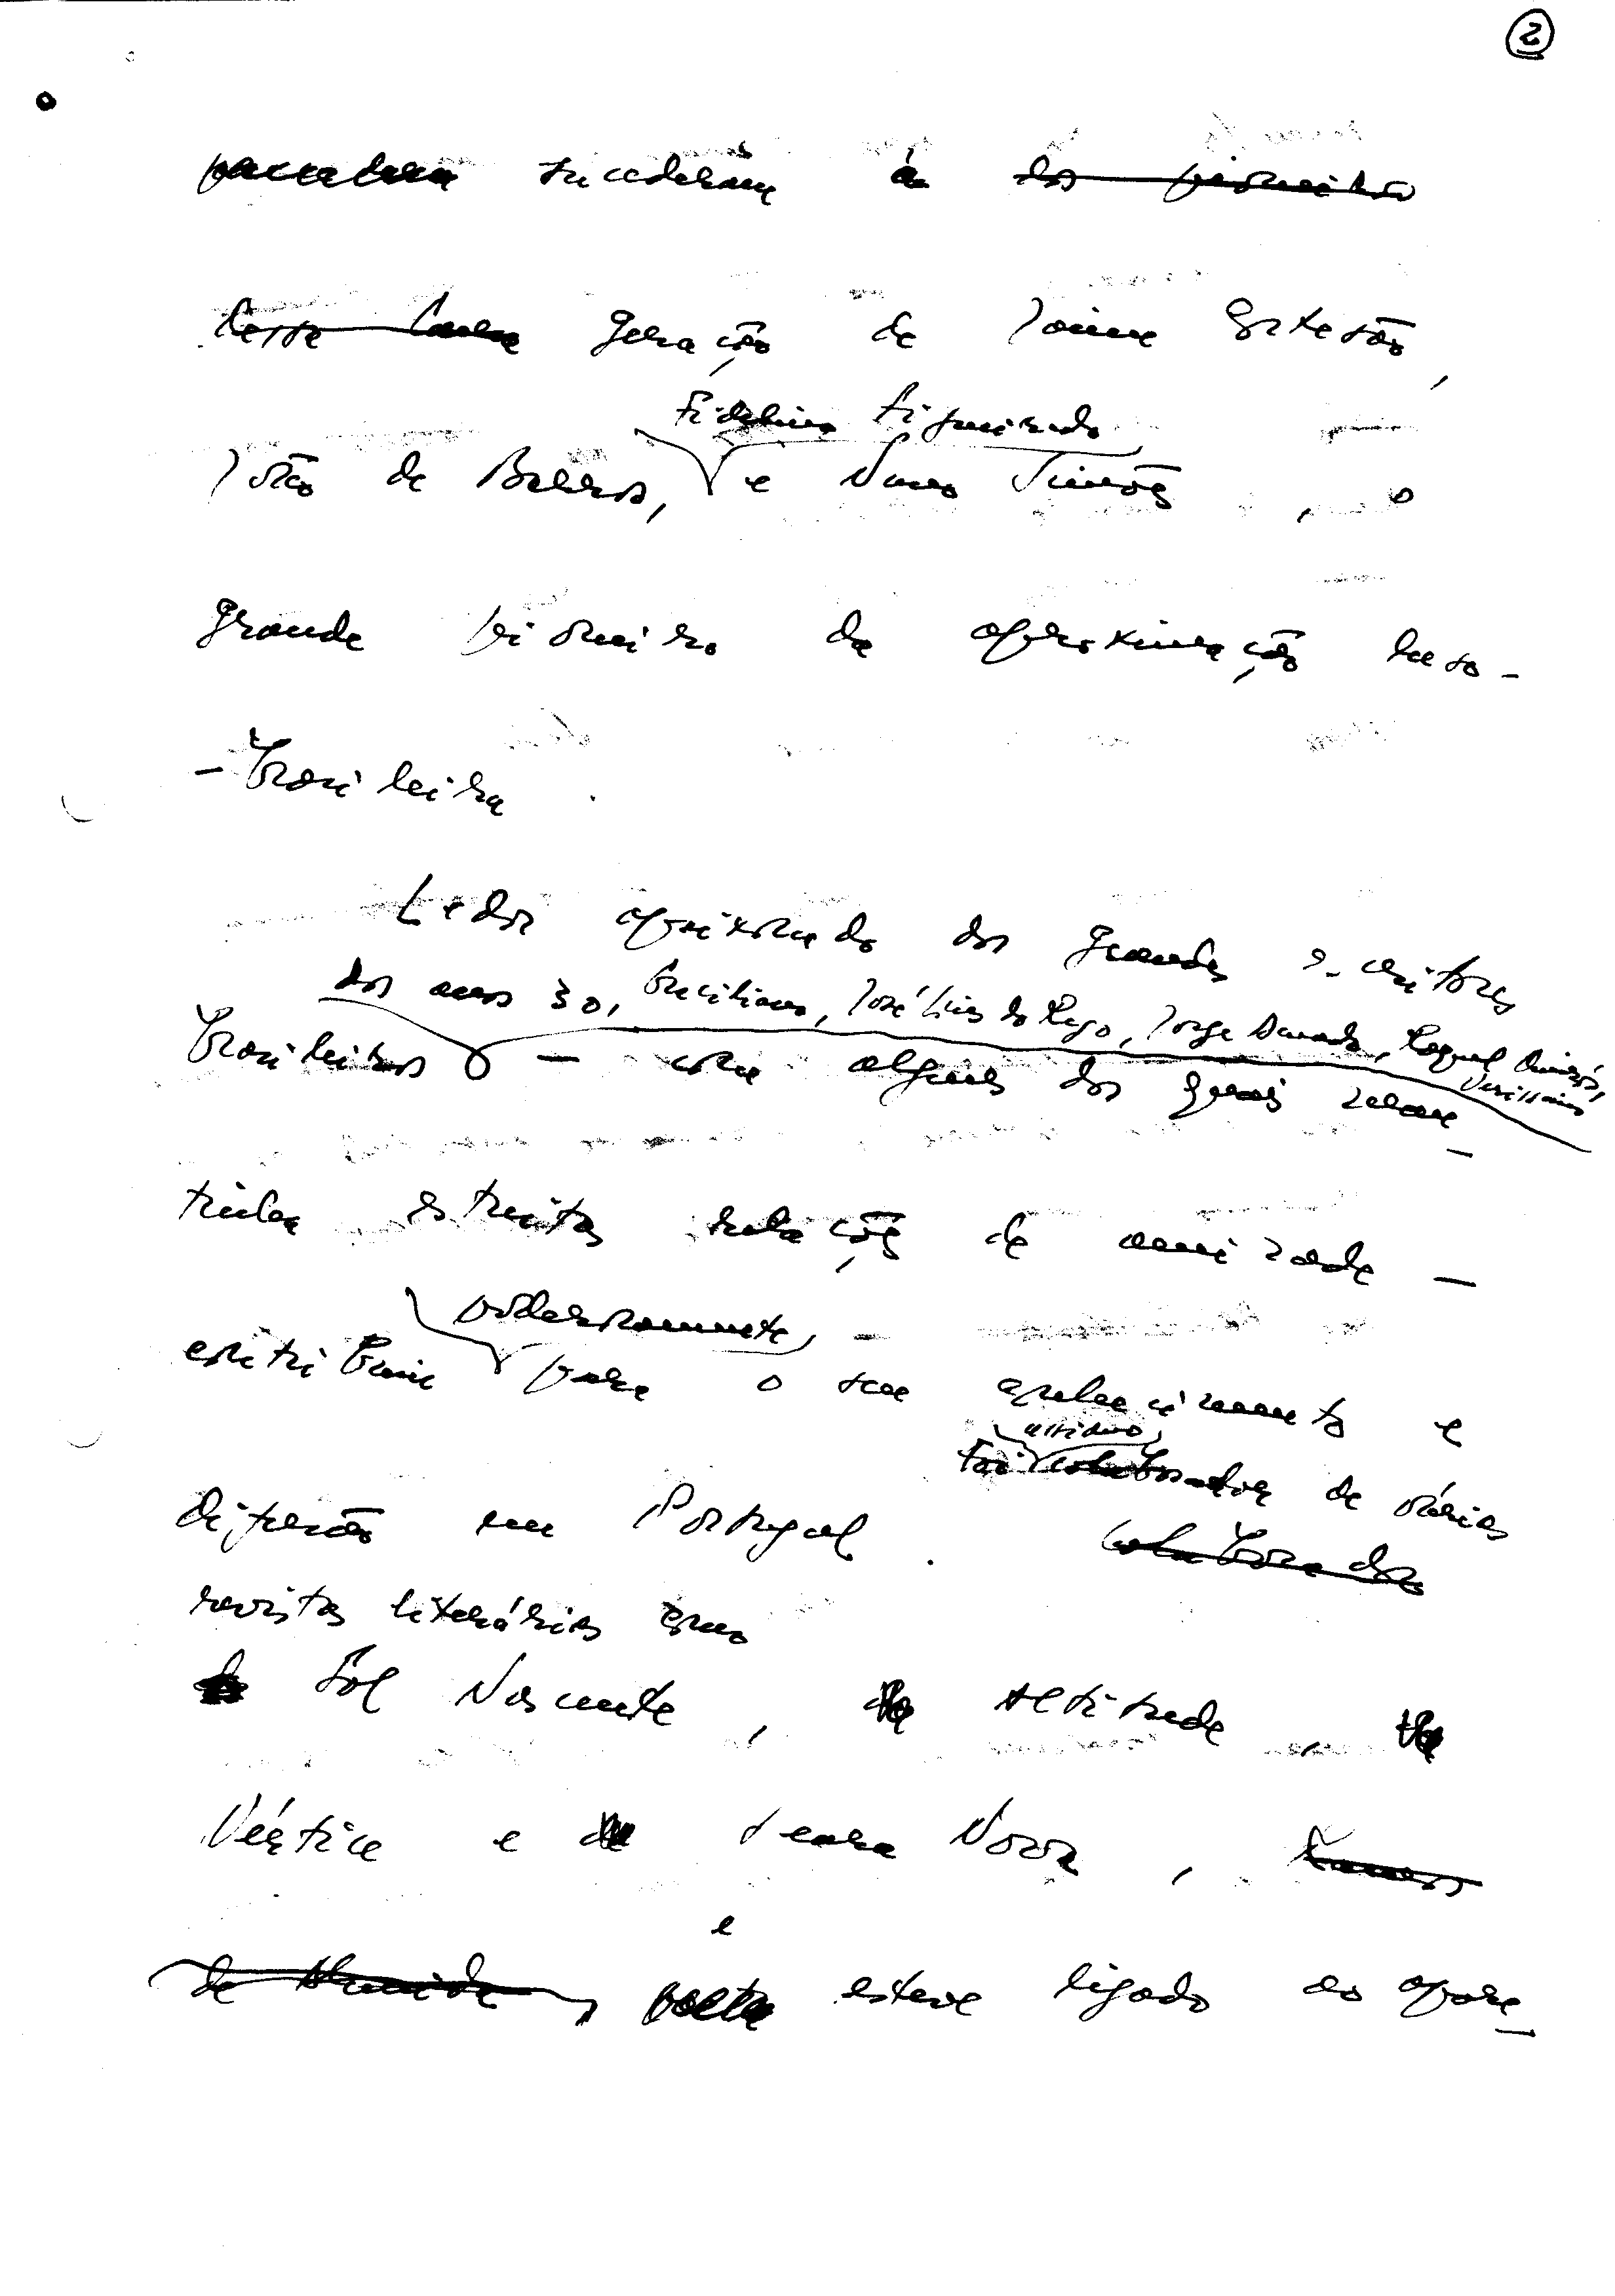 2
sucederam à
geração de Jaime Cortesão,
Fidelino Figueiredo
João de Barros, e Nuno Simões, o
grande pioneiro da aproximação luso-
-brasileira.
Ledor apaixonado dos grandes escritores
dos anos 30, Graciliano, José Lins do Rego, Jorge Amado, Raquel
Veríssimo
brasileiros — com alguns dos quais man-
tinha estreitas relações de amizade —
poderosamente, —
contribuiu para o seu conhecimento e
assíduo
Foi colaborador de várias
difusão em Portugal. colaborador
revistas literárias como
Sol Nascente, Altitude,
Vértice e Seara Nova,
e
de Almeida, esteve ligado ao apare-